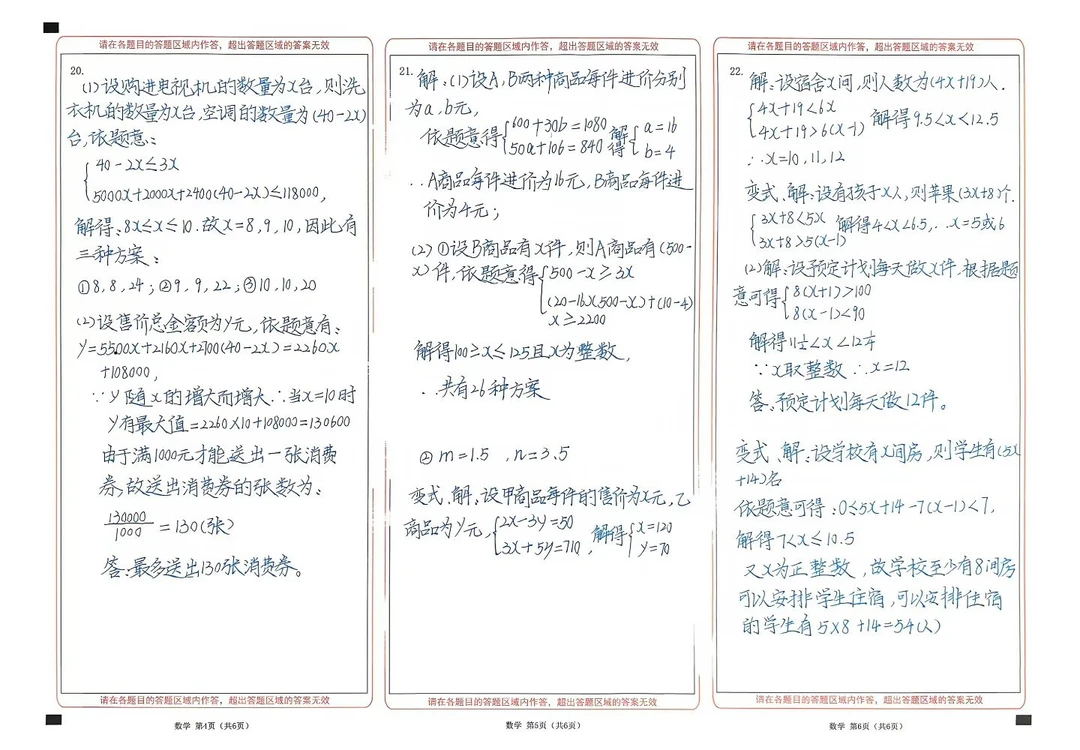 请在各题目的答题区域内作答，超出答题区域的答案无效
20.
(1)设购进电视机的数量为x台，则洗
衣机的数量为x台，空调的数量为(40-2x)
台，依题意：
40-2x≤3x
5000x+2000x+2400(40-2x)≤118000,
解得：8x≤x≤10.故x=8,9,10,因此有
三种方案：
①8,8,24；②9,9,22；③10,10,20
(2)设售价总金额为y元，依题意有：
y=5500x+2160x+2700(40-2x)=2260x
+108000,
∵y随x的增大而增大∴当x=10时
y有最大值=2260×10+108000=130600
由于满1000元才能送出一张消费
券，故送出消费券的张数为：
130000/1000=130(张)
答：最多送出130张消费券。
请在各题目的答题区域内作答，超出答题区域的答案无效
数学 第4页（共6页）
请在各题目的答题区域内作答，超出答题区域的答案无效
21.
解：(1)设A,B两种商品每件进价分别
为a,b元，
依题意得{600+30b=1080 解 {a=16
50a+106=840 得 b=4
∴A商品每件进价为16元，B商品每件进
价为4元；
(2)①设B商品有x件，则A商品有(500-
x)件，依题意得{500-x≥3x
(20-16)(500-x)+(10-4)
x≥2200
解得100≥x≤125且x为整数，
∴共有26种方案
②m=1.5 ,n=3.5
变式.解：设甲商品每件的售价为x元，乙
商品为y元，{2x-3y=50 解得{x=120
3x+5y=710, y=70
请在各题目的答题区域内作答，超出答题区域的答案无效
数学 第5页（共6页）
请在各题目的答题区域内作答，超出答题区域的答案无效
22.
解：设宿舍x间，则人数为(4x+19)人.
{4x+19<6x
4x+19>6(x-1) 解得9.5<x<12.5
∴x=10,11,12
变式.解：设有孩子x人，则苹果(3x+8)个.
{3x+8<5x
3x+8>5(x-1) 解得4<x<6.5,∴x=5或6
(2)解：设预定计划每天做x件，根据题
意可得{8(x+1)>100
8(x-1)<90
解得11½<x<12¼
∵x取整数∴x=12
答：预定计划每天做12件。
变式.解：设学校有x间房，则学生有(5x
+14)名
依题意可得：0≤5x+14-7(x-1)<7,
解得7<x≤10.5
又x为正整数，故学校至少有8间房
可以安排学生住宿，可以安排住宿
的学生有5×8+14=54(人)
请在各题目的答题区域内作答，超出答题区域的答案无效
数学 第6页（共6页）